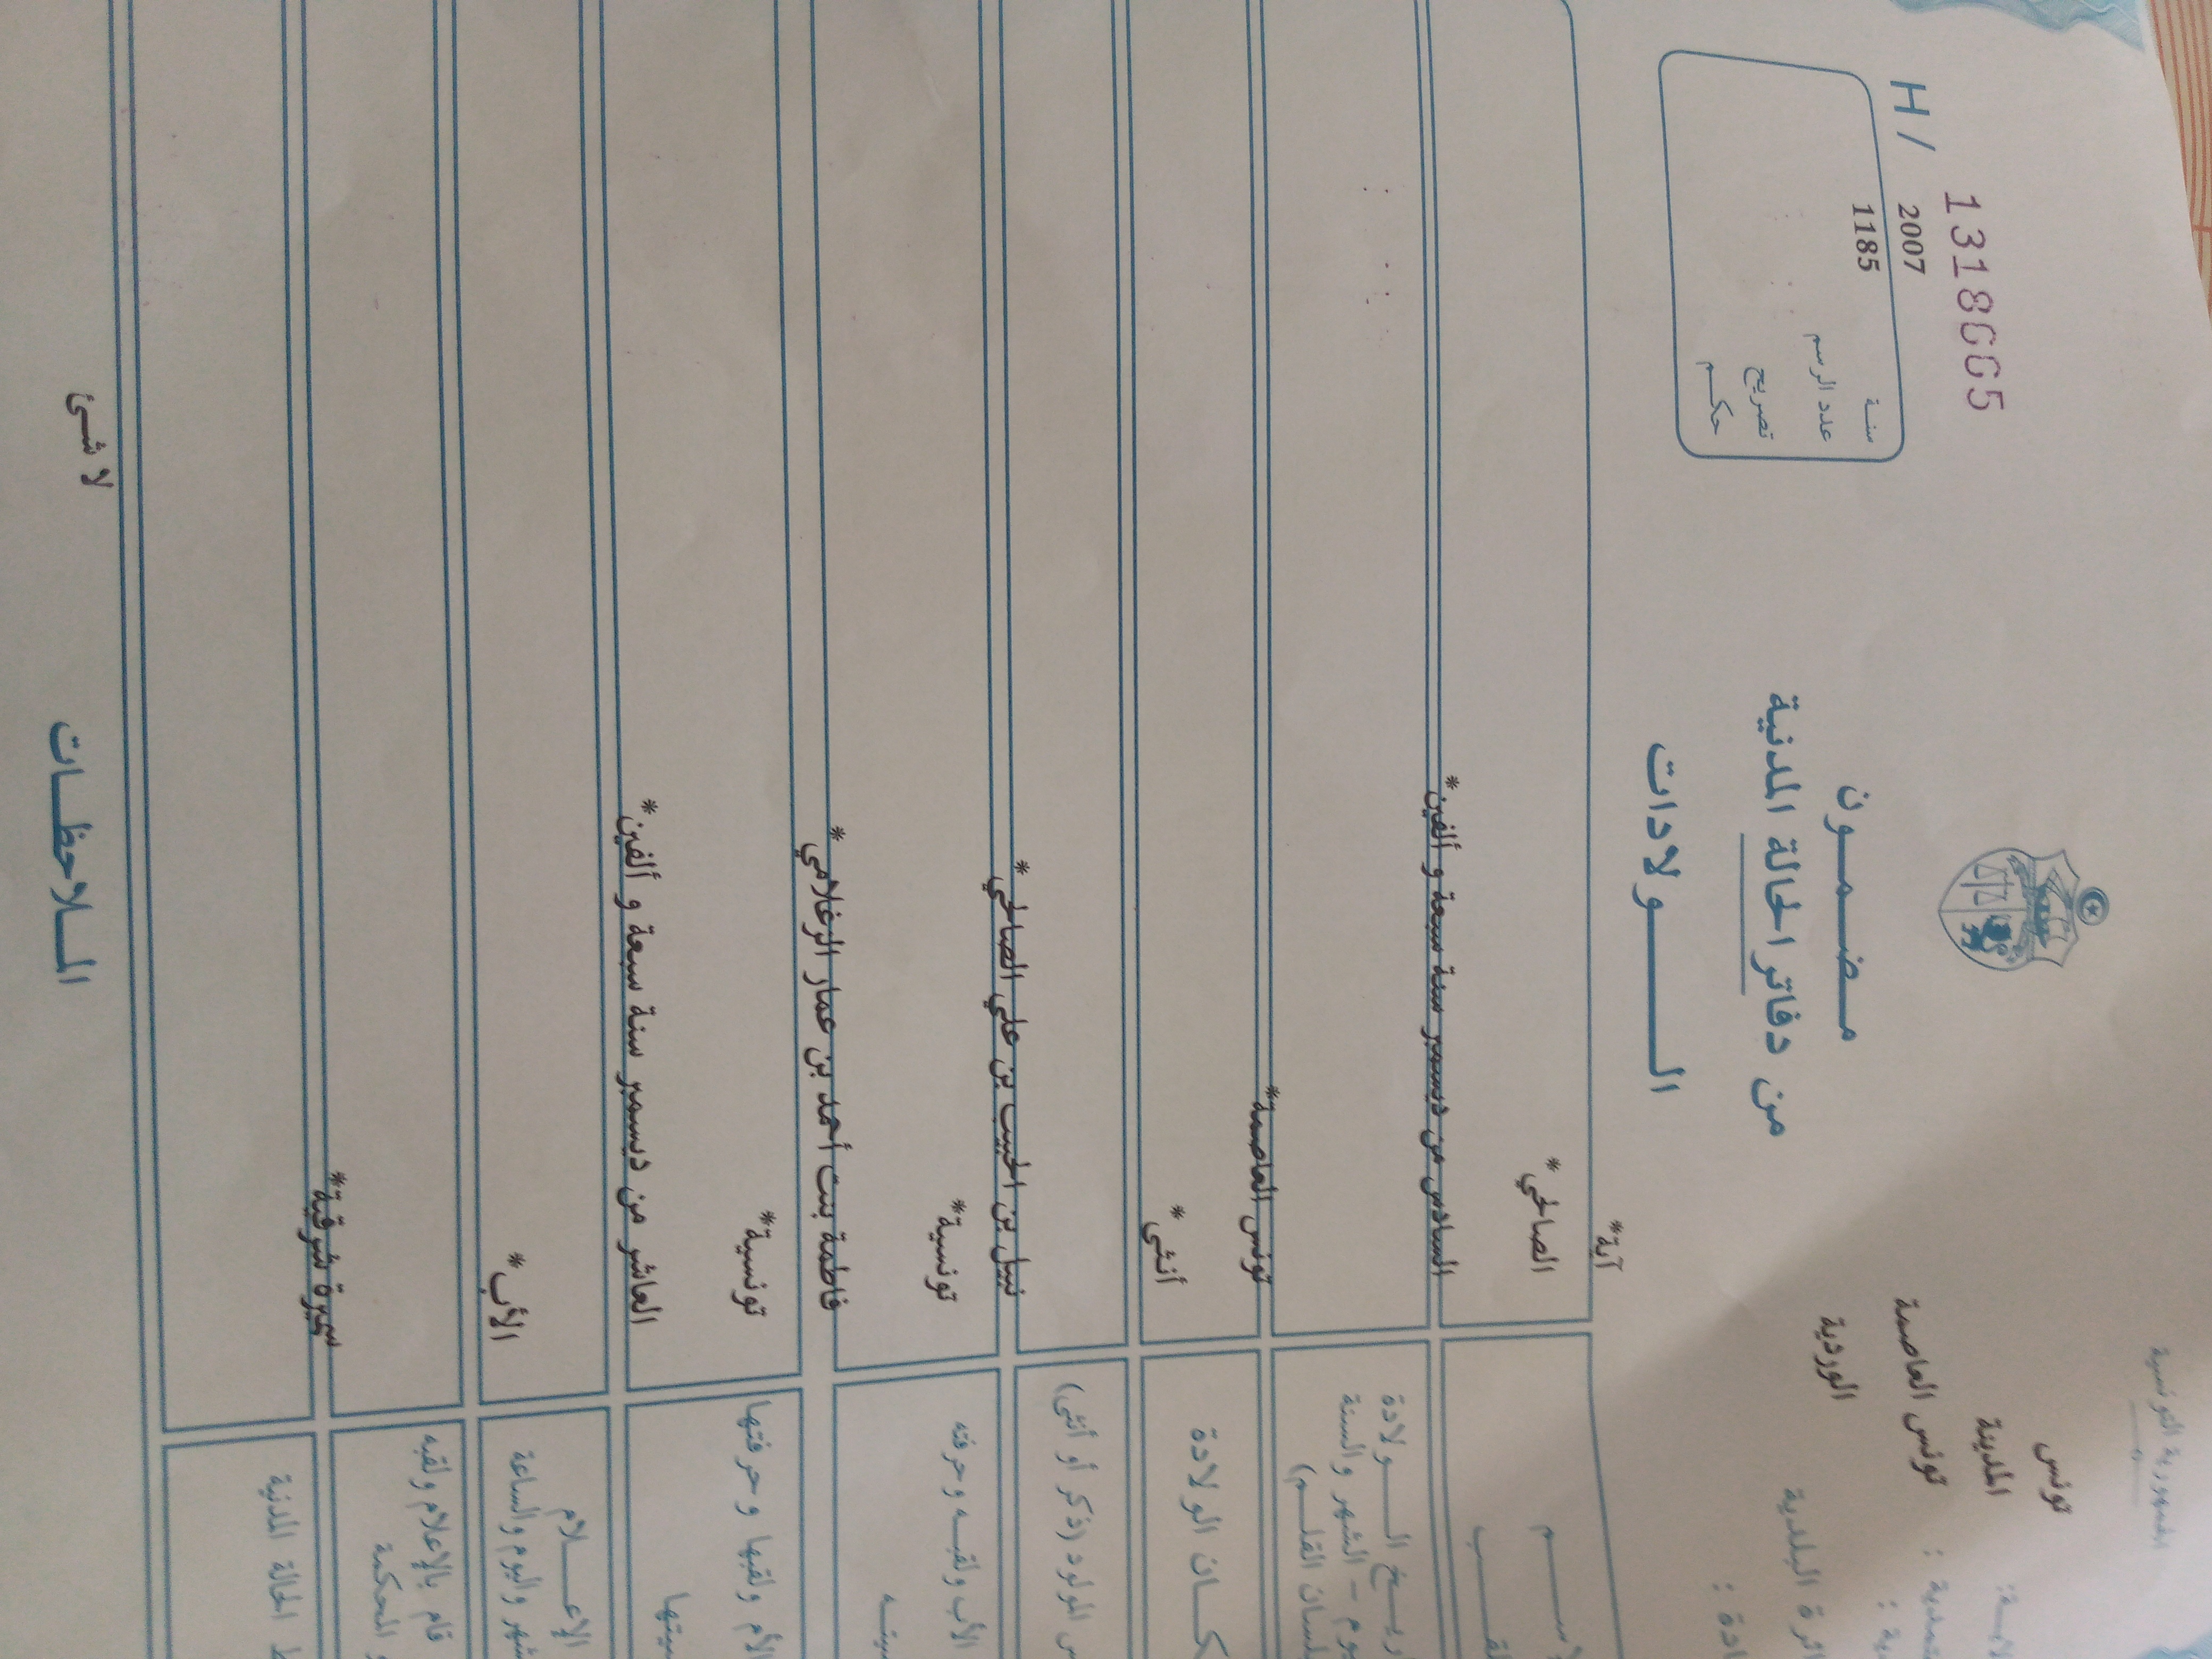 الجمهورية التونسية
تونس
المدينة
تونس العاصمة
الوردية
H / 1318665
سنة 2007
عدد الرسم 1185
تصريح
حكم
مضمون
من دفاتر الحالة المدنية
الولادات
آية*
الصالحي*
تاريخ الولادة
السادس من ديسمبر سنة سبعة و ألفين*
الشهر والسنة
بلسان القلم)
مكان الولادة
تونس العاصمة*
المولود (ذكر أو أنثى)
أنثى*
الأب ولقبه وحرفته
نبيل بن الحبيب بن علي الصالحي*
تونسية*
الأم ولقبها وحرفتها
فاطمة بنت أحمد بن عمار الزغلامي*
تونسية*
الإعلام
واليوم والساعة
العاشر من ديسمبر سنة سبعة و ألفين*
قام بالإعلام ولقبه
المحكمة
الأب*
الحالة المدنية
سميرة شوقية*
الملاحظات
لا شئ